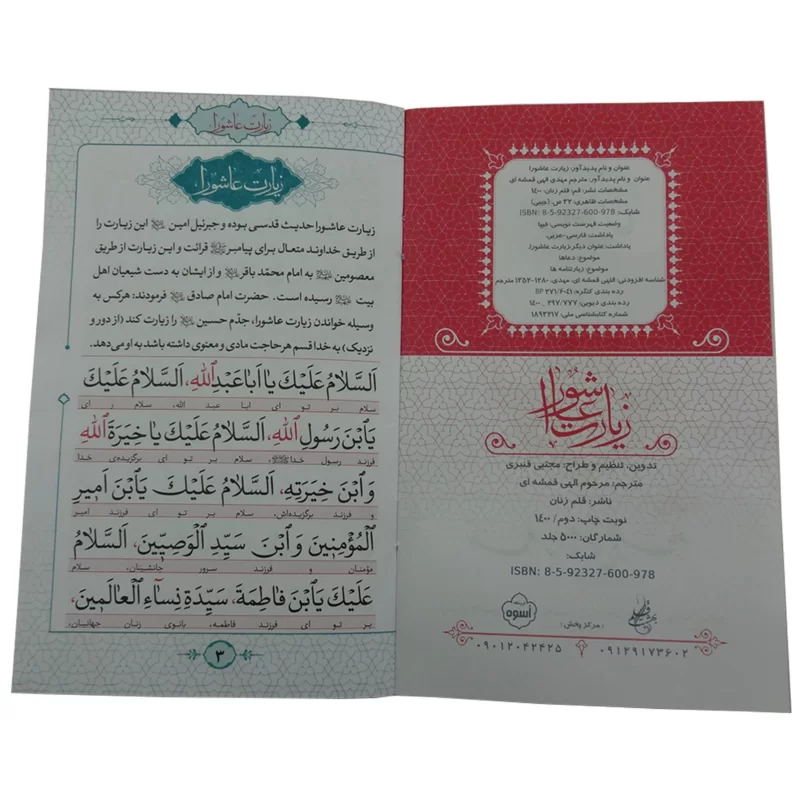 عنوان و نام پدیدآور: زیارت عاشورا
عنوان و نام پدیدآور: مترجم مهدی الهی قمشه ای
مشخصات نشر: قم، قلم زنان، ۱۴۰۰
مشخصات ظاهری: ۳۲ ص. (جیبی)
شابک: ISBN: 8-5-92327-600-978
وضعیت فهرست نویسی: فیپا
یادداشت: فارسی-عربی.
یاداشت: عنوان دیگر: زیارت عاشورا.
موضوع: دعاها
موضوع: زیارتنامه ها
شناسه افزودنی: الهی قمشه ای، مهدی، ۱۲۸۰-۱۳۵۲ مترجم
رده بندی کنگره: BP ۲۷۱/۶۰۴۱
رده بندی دیویی: ۲۹۷/۷۷۷ ۱۴۰۰
شماره کتابشناسی ملی: ۱۸۹۳۲۱۷
زیارت عاشورا
تدوین، تنظیم و طراح: مجتبی قنبری
مترجم: مرحوم الهی قمشه ای
ناشر: قلم زنان
نوبت چاپ: دوم/ ۱۴۰۰
شمارگان: ۵۰۰۰ جلد
شابک:
ISBN: 8-5-92327-600-978
مرکز پخش:
اسوه
۰۹۱۲۹۱۷۳۶۰۲ ۰۹۰۱۲۰۴۲۴۲۵
زیارت عاشورا
زیارت عاشورا
زیارت عاشورا حدیث قدسی بوده و جبرئیل امین این زیارت را
از طریق خداوند متعال برای پیامبر ﷺ قرائت و این زیارت از طریق
معصومین به امام محمد باقر و از ایشان به دست شیعیان اهل
بیت رسیده است. حضرت امام صادق فرمودند: هرکس به
وسیله خواندن زیارت عاشورا، جدّم حسین را زیارت کند (از دور و
نزدیک) به خدا قسم هر حاجت مادی و معنوی داشته باشد به او می‌دهد.
اَلسَّلامُ عَلَیْكَ یا اَباعَبْدِاللهِ، اَلسَّلامُ عَلَیْكَ
سلام بر تو ای ابا عبد الله، سلام بر تو ای
یَا بْنَ رَسُولِ اللهِ، اَلسَّلامُ عَلَیْكَ یا خِیَرَةَ اللهِ
فرزند رسول خدا ﷺ، سلام بر تو ای برگزیده‌ی خدا
وَابْنَ خِیَرَتِهِ، اَلسَّلامُ عَلَیْكَ یَابْنَ اَمیرِ
و فرزند برگزیده‌اش. سلام بر تو ای فرزند امیر
الْمُؤْمِنینَ وَابْنَ سَیِّدِ الْوَصِیّینَ، اَلسَّلامُ
مؤمنان و فرزند سرور جانشینان، سلام
عَلَیْكَ یَابْنَ فاطِمَةَ، سَیِّدَةِ نِساءِ الْعالَمینَ،
بر تو ای فرزند فاطمه، بانوی زنان جهانیان،
۳